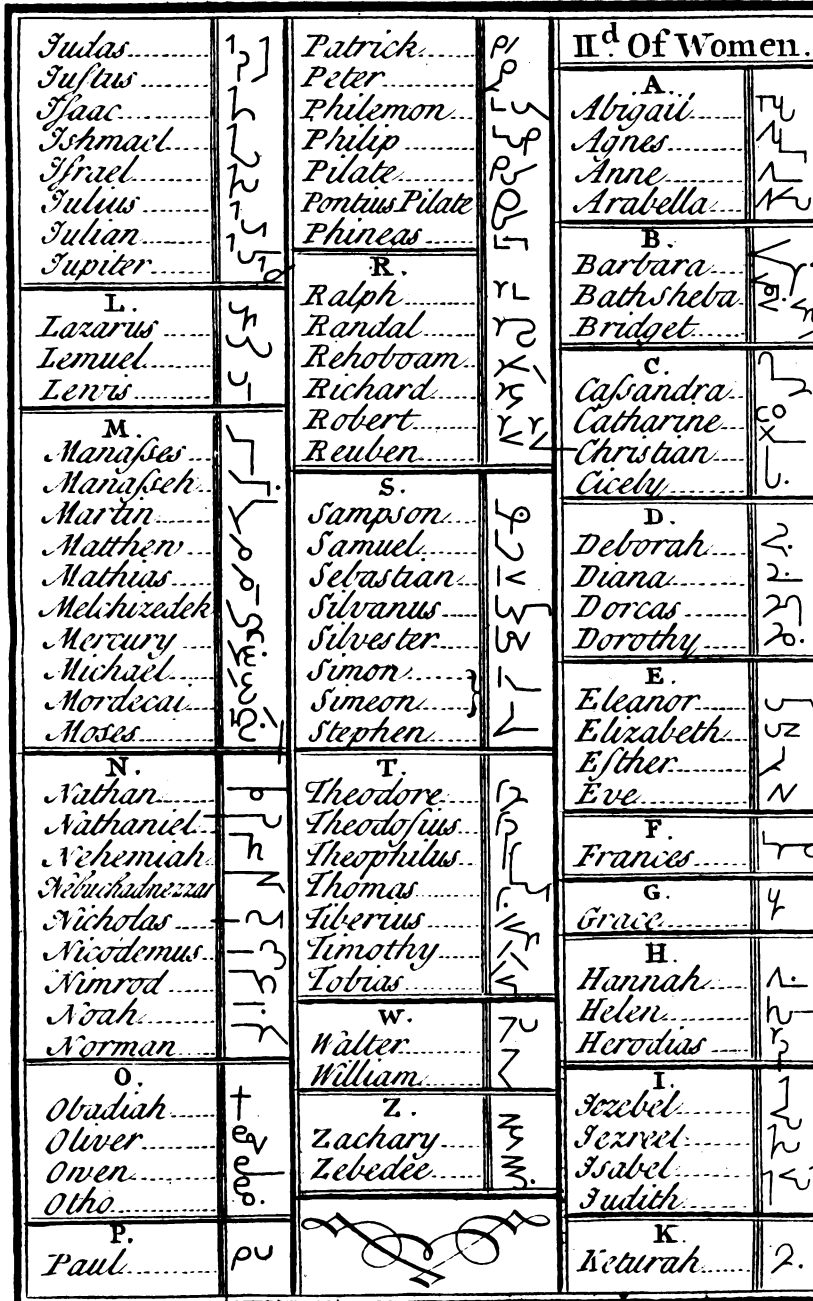 Judas
Juſtus
Iſaac
Ishmael
Iſrael
Julius
Julian
Jupiter
L.
Lazarus
Lemuel
Lewis
M.
Manaſses
Manaſseh
Martin
Matthew
Mathias
Melchizedek
Mercury
Michael
Mordecai
Moses
N.
Nathan
Nathaniel
Nehemiah
Nebuchadnezzar
Nicholas
Nicodemus
Nimrod
Noah
Norman
O.
Obadiah
Oliver
Owen
Otho
P.
Paul
Patrick
Peter
Philemon
Philip
Pilate
Pontius Pilate
Phineas
R.
Ralph
Randal
Rehoboam
Richard
Robert
Reuben
S.
Sampson
Samuel
Sebastian
Silvanus
Silvester
Simon
Simeon
Stephen
T.
Theodore
Theodoſius
Theophilus
Thomas
Tiberius
Timothy
Tobias
W.
Walter
William
Z.
Zachary
Zebedee
IId. Of Women.
A.
Abigail
Agnes
Anne
Arabella
B.
Barbara
Bathsheba
Bridget
C.
Caſsandra
Catharine
Christian
Cicely
D.
Deborah
Diana
Dorcas
Dorothy
E.
Eleanor
Elizabeth
Eſther
Eve
F.
Frances
G.
Grace
H.
Hannah
Helen
Herodias
I.
Jezebel
Jezreel
Isabel
Judith
K.
Keturah